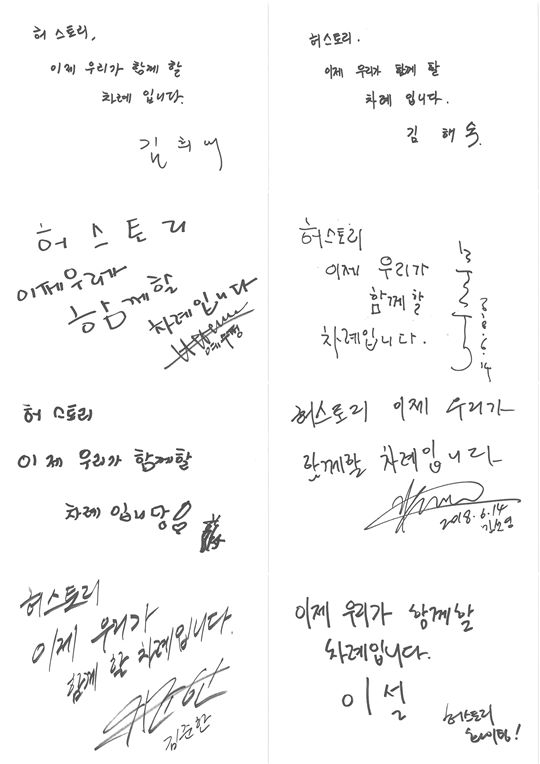 허 스토리,
이제 우리가 함께 할
차례 입니다.
김희애
허스토리.
이제 우리가 함께 할
차례 입니다.
김 해 숙.
허 스 토 리
이제 우리가
함께할
차례입니다
허스토리
이제 우리가
함께할
차례입니다.
2018.6.14
허 스토리
이제 우리가 함께할
차례 입니당
허스토리 이제 우리가
함께할 차례입니다
2018.6.14
김선영
허스토리
이제 우리가
함께 할 차례입니다.
김준한
이제 우리가 함께할
차례입니다.
이 설
허스토리
화이팅!